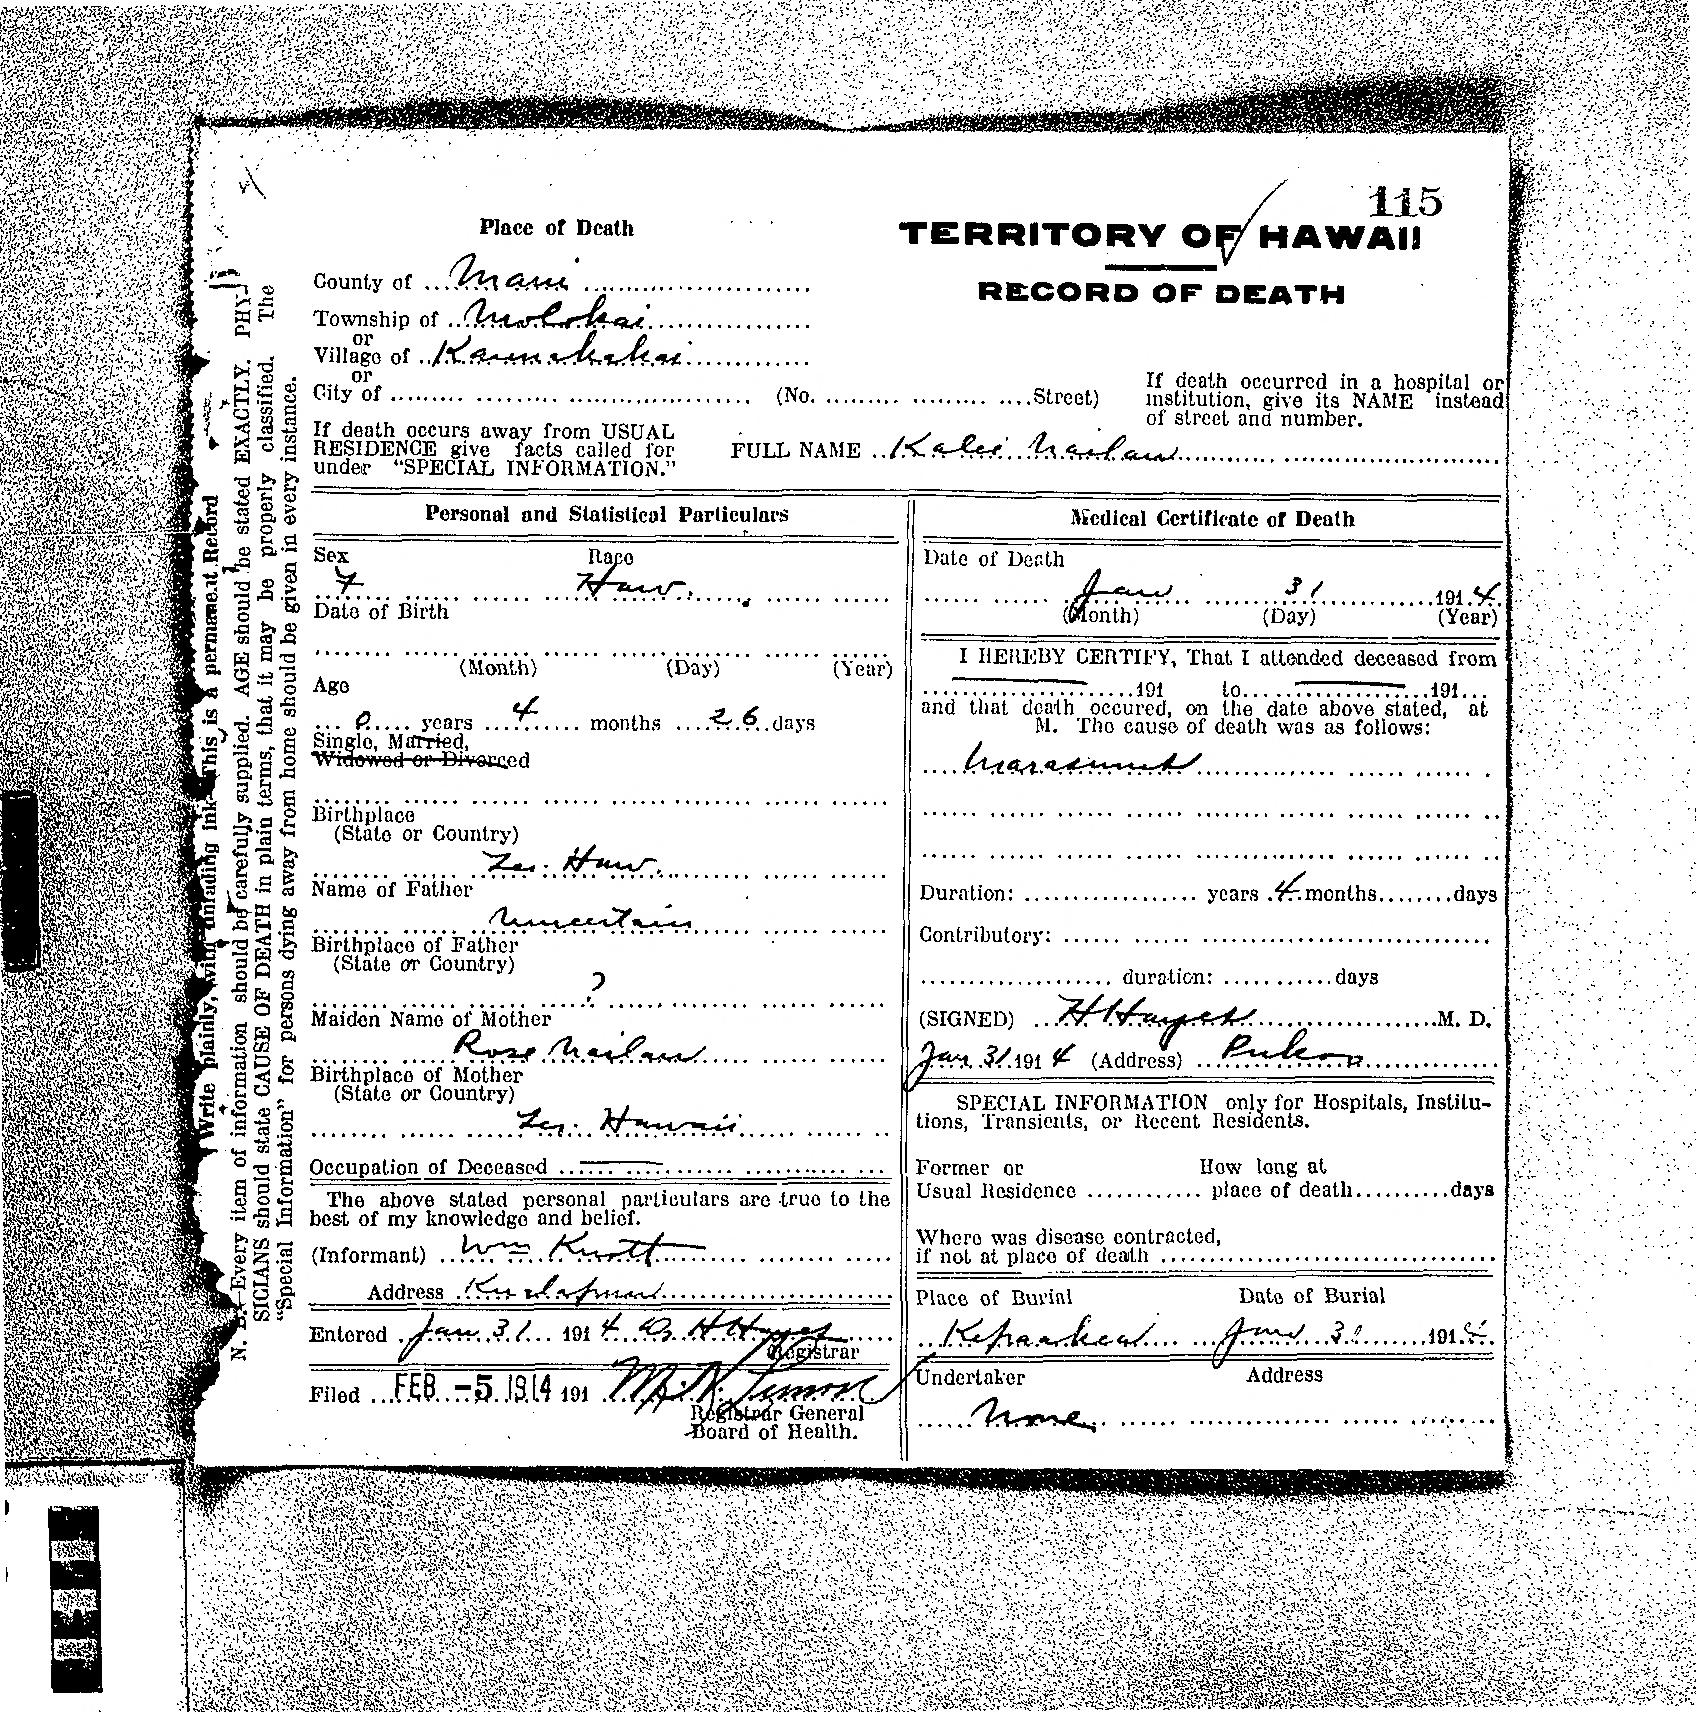 115
TERRITORY OF HAWAII
RECORD OF DEATH
Place of Death
County of Maui
Township of Molokai
or
Village of Kaunakakai
or
City of (No. Street)
If death occurred in a hospital or
institution, give its NAME instead
of street and number.
If death occurs away from USUAL
RESIDENCE give facts called for
under "SPECIAL INFORMATION."
FULL NAME Kalei Nailau
Personal and Statistical Particulars
Sex Race
F Haw.
Date of Birth
(Month) (Day) (Year)
Age
0 years 4 months 26 days
Single, Married,
Widowed or Divorced
Birthplace
(State or Country)
Ter. Haw.
Name of Father
Uncertain
Birthplace of Father
(State or Country)
?
Maiden Name of Mother
Rose Nailau
Birthplace of Mother
(State or Country)
Ter. Hawaii
Occupation of Deceased
The above stated personal particulars are true to the
best of my knowledge and belief.
(Informant) Wm Knott
Address
Entered Jan 31 1914 H Hayes
Registrar
Filed FEB -5 1914 191
Registrar General
Board of Health.
Medical Certificate of Death
Date of Death
Jan 31 1914
(Month) (Day) (Year)
I HEREBY CERTIFY, That I attended deceased from
191 to 191
and that death occured, on the date above stated, at
M. The cause of death was as follows:
Marasmus
Duration: years 4 months days
Contributory:
duration: days
(SIGNED) H Hayes M. D.
Jan 31 1914 (Address) Pukoo
SPECIAL INFORMATION only for Hospitals, Institu-
tions, Transients, or Recent Residents.
Former or How long at
Usual Residence place of death days
Where was disease contracted,
if not at place of death
Place of Burial Date of Burial
Jan 191
Undertaker Address
None
Write plainly, with unfading ink—This is a permanent Record
N. B.—Every item of information should be carefully supplied. AGE should be stated EXACTLY. PHY-
SICIANS should state CAUSE OF DEATH in plain terms, that it may be properly classified. The
"Special Information" for persons dying away from home should be given in every instance.